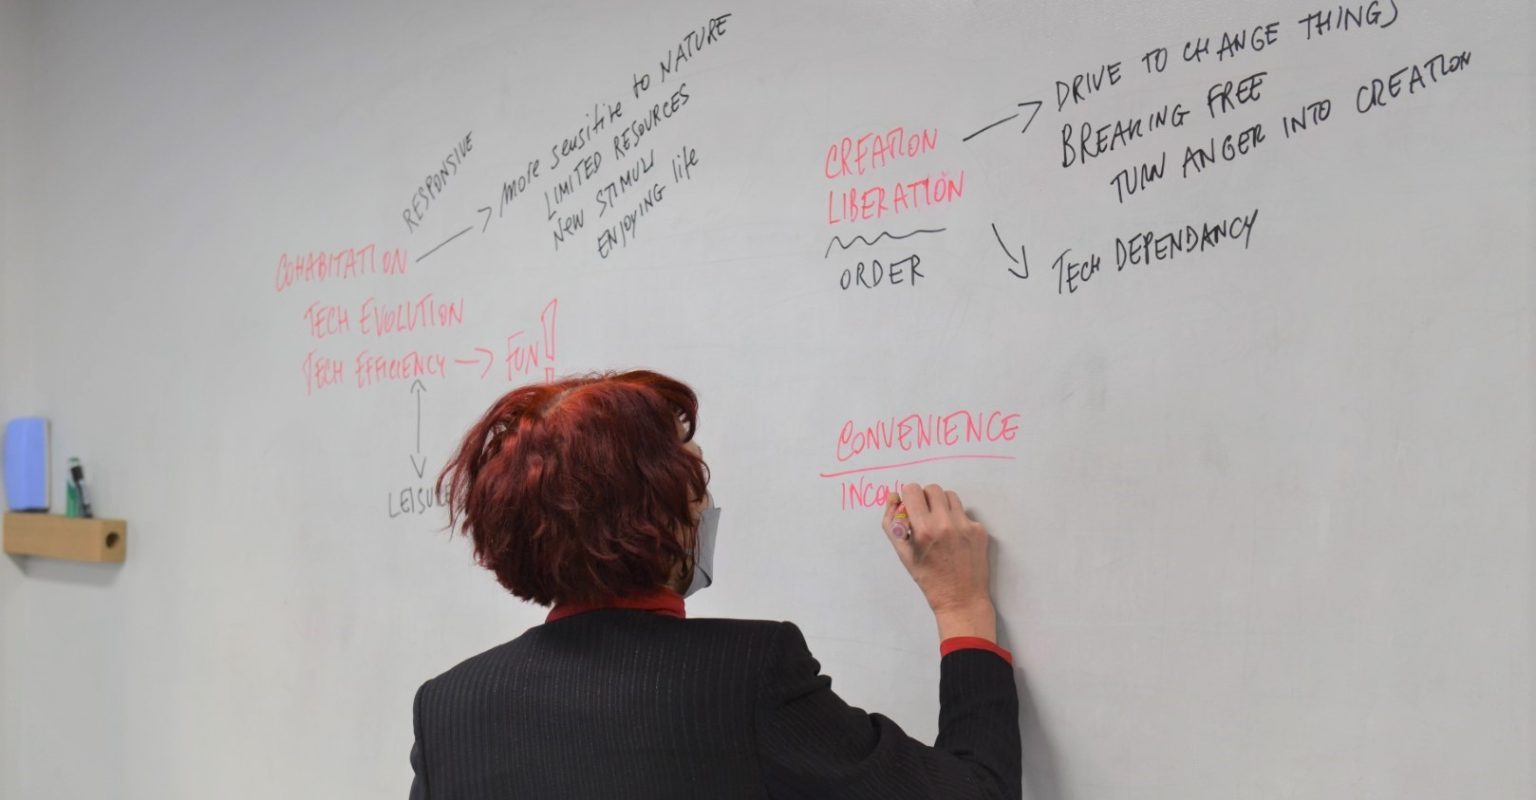 RESPONSIVE
more sensitive to NATURE
LIMITED RESOURCES
New STIMULI
ENJOYING life
COHABITATION
TECH EVOLUTION
TECH EFFICIENCY → FUN!
LEISURE
CREATION
LIBERATION
ORDER
DRIVE TO CHANGE THINGS
BREAKING FREE
TURN ANGER INTO CREATION
TECH DEPENDANCY
CONVENIENCE
INCON